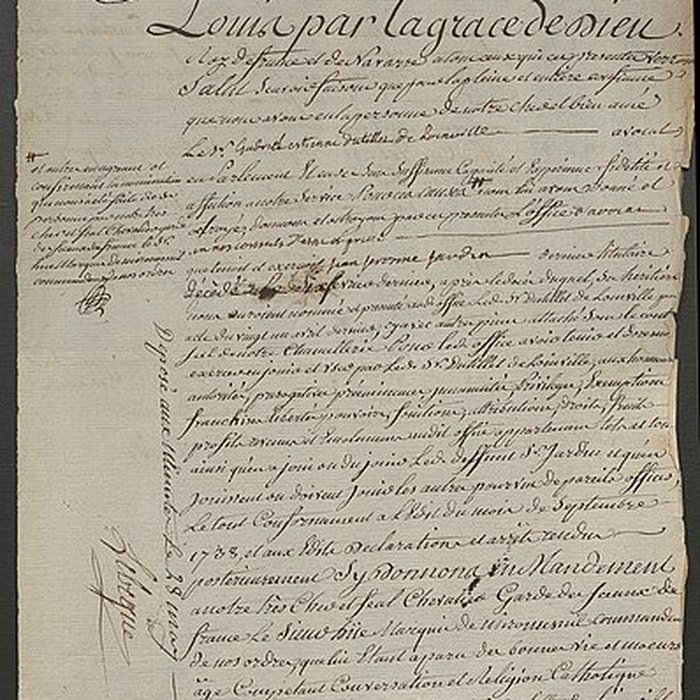 Louis par la grace de Dieu.
Roy de france et de Navarre a tous ceux qui ces presentes Verront
Salut scavoir faisons que pour la pleine et entiere confiance
que nous avons en la personne de notre cher et bien amé
Le Sr. Gabriel Etienne Dutillet de Loinville avocat
en Parlement Et en ses Sens Suffisance Capacité et Experience fidelité et
affection a notre service Pour ces causes # nous lui avons donné et
octroyé, donnons et octroyons par ces presentes L'office d'avocat
en nos conseils
que tenoit et exercoit Jean Jerome Jardin dernier titulaire
Décédé fevrier dernier, après le décès duquel, ses heritiers
nous auroient nommé et presenté audit office Led. Sr. Dutillet de Loinville par
acte du vingt un avril dernier, cy avec autres pieces attaché sous le contre
scel de notre Chancellerie Pour led. office avoir tenir et doresnavant
exercer en jouir et User par Led. Sr. Dutillet de Loinville, aux honneurs
autorités, prerogatives préeminences, privileges, Exemptions
franchises libertés, pouvoirs, fonctions, attributions, droits, fruits
profits revenus et Emolumens audit office appartenans tels et tout
ainsi qu'en a joui ou du jouir Led. deffunt Sr. Jardin et qu'en
Jouissent ou doivent jouir les autres pourvus de pareils offices,
Le tout Conformement a l'Edit du mois de Septembre
1738, et aux Edits Declarations et arrêts rendus
posterieurement Sy Donnons en Mandement
a notre très Cher et feal Chevalier Garde des Sceaux de
france Le Sieur hüe Marquis de miromenil commandeur
de nos ordres, que lui Etant apparu des bonnes vie et moeurs
âge Competant Conversation et Religion Catholique
#
et autre en agreant et
confirmant la nomination
que nous a été faite de sa
personne par notre tres
cher et feal Chevalier garde
des Sceaux de france le Sr.
hue Marquis de miromenil
commandeur de nos ordres
Deposé aux Minutes Le 28 may